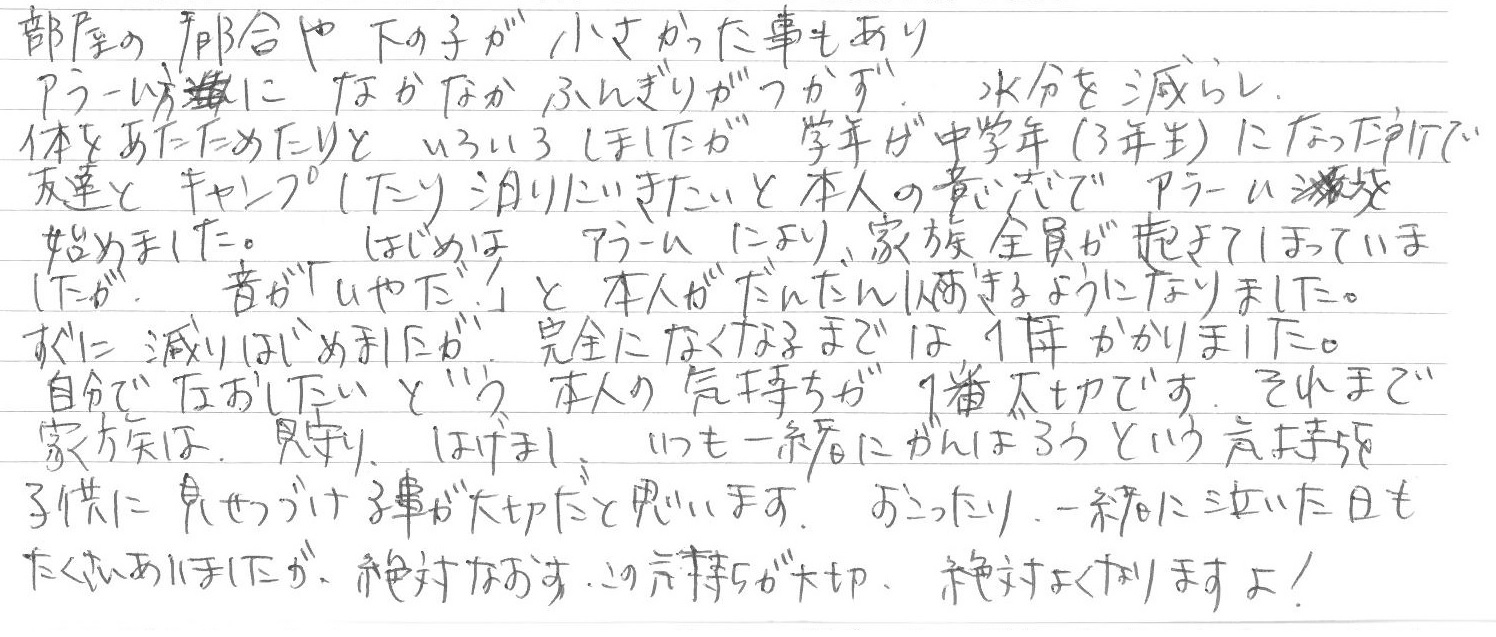 部屋の都合や下の子が小さかった事もあり
アラームになかなかふんぎりがつかず、水分を減らし、
体をあたためたりといろいろしましたが学年が中学年(3年生)になった所で
友達とキャンプしたり泊りにいきたいと本人の意志でアラーム
始めました。はじめはアラームにより、家族全員が起きてしまっていま
したが、音が「いやだ!」と本人がだんだんおきるようになりました。
すぐに減りはじめましたが、完全になくなるまでは、1年かかりました。
自分でなおしたいという本人の気持ちが1番大切です。それまで
家族は、見守り、はげまし、いつも一緒にがんばろうという気持ちを
子供に見せつづける事が大切だと思います。おこったり、一緒に泣いた日も
たくさんありましたが、絶対なおす、この気持ちが大切、絶対よくなりますよ!